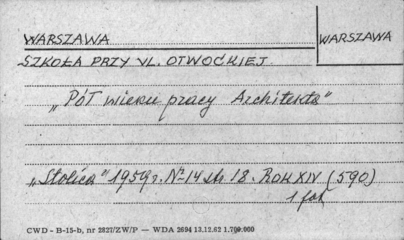 WARSZAWA
WARSZAWA
SZKOŁA PRZY UL. OTWOCKIEJ
„Pół wieku pracy Architekta"
„Stolica" 1959 r. Nr 14 str. 18. Rok XIV (590)
1 fot
CWD - B-15-b, nr 2827/ZW/P — WDA 2694 13.12.62 1.700.000